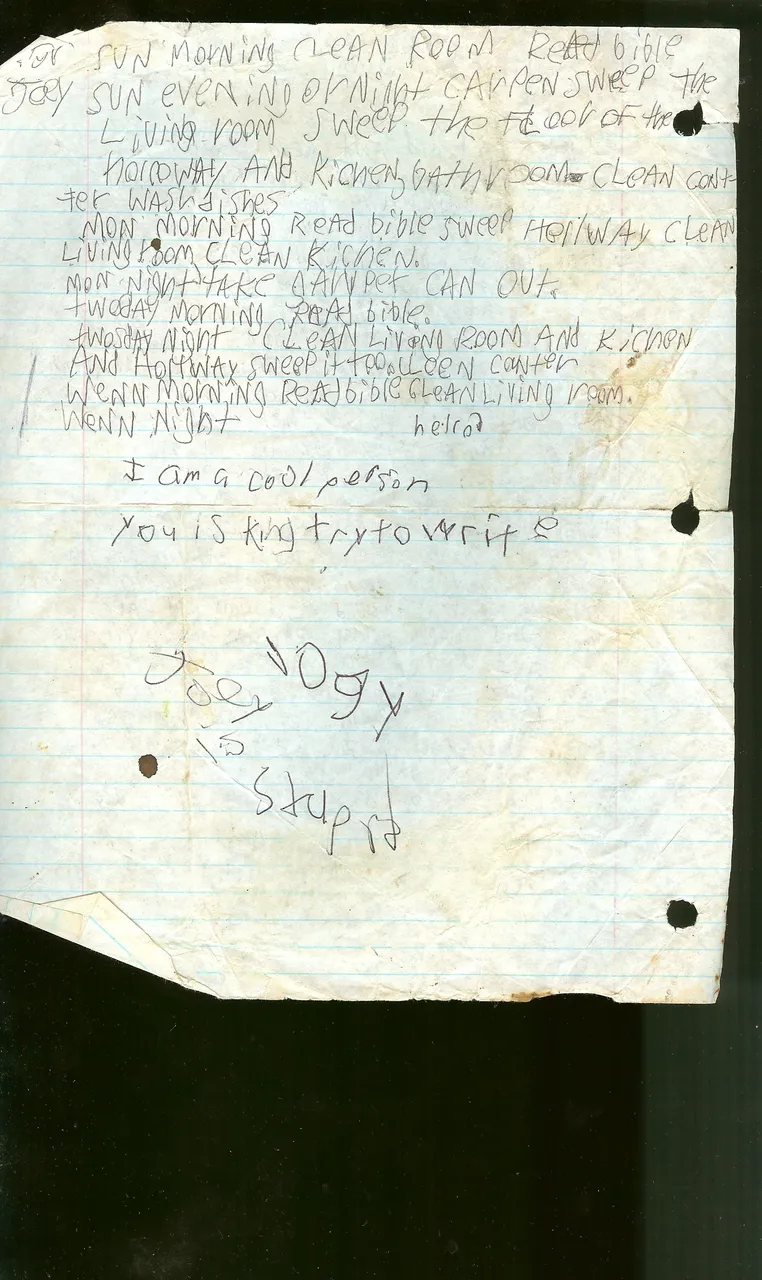 SUN MORNING CLEAN ROOM Read bible
Joey SUN evening or Night CARPEN sweep the
Living room sweep the FLoor OF the
horroway AND Kichen, bathroom CLEAN cont-
ter wash dishes
MON MORNING Read bible sweep Hellway CLEAN
Living room CLEAN KicheN.
MON Night TAKE CAN OUT.
twoday Morning Read bible.
twosday Night CLEAN Living ROOM AND KicheN
AND Horrway sweep it too. cleen conter
Wenn Morning Read bible CLEAN Living room.
Wenn Night
I am a cool person
you is king try to write
Joey
is